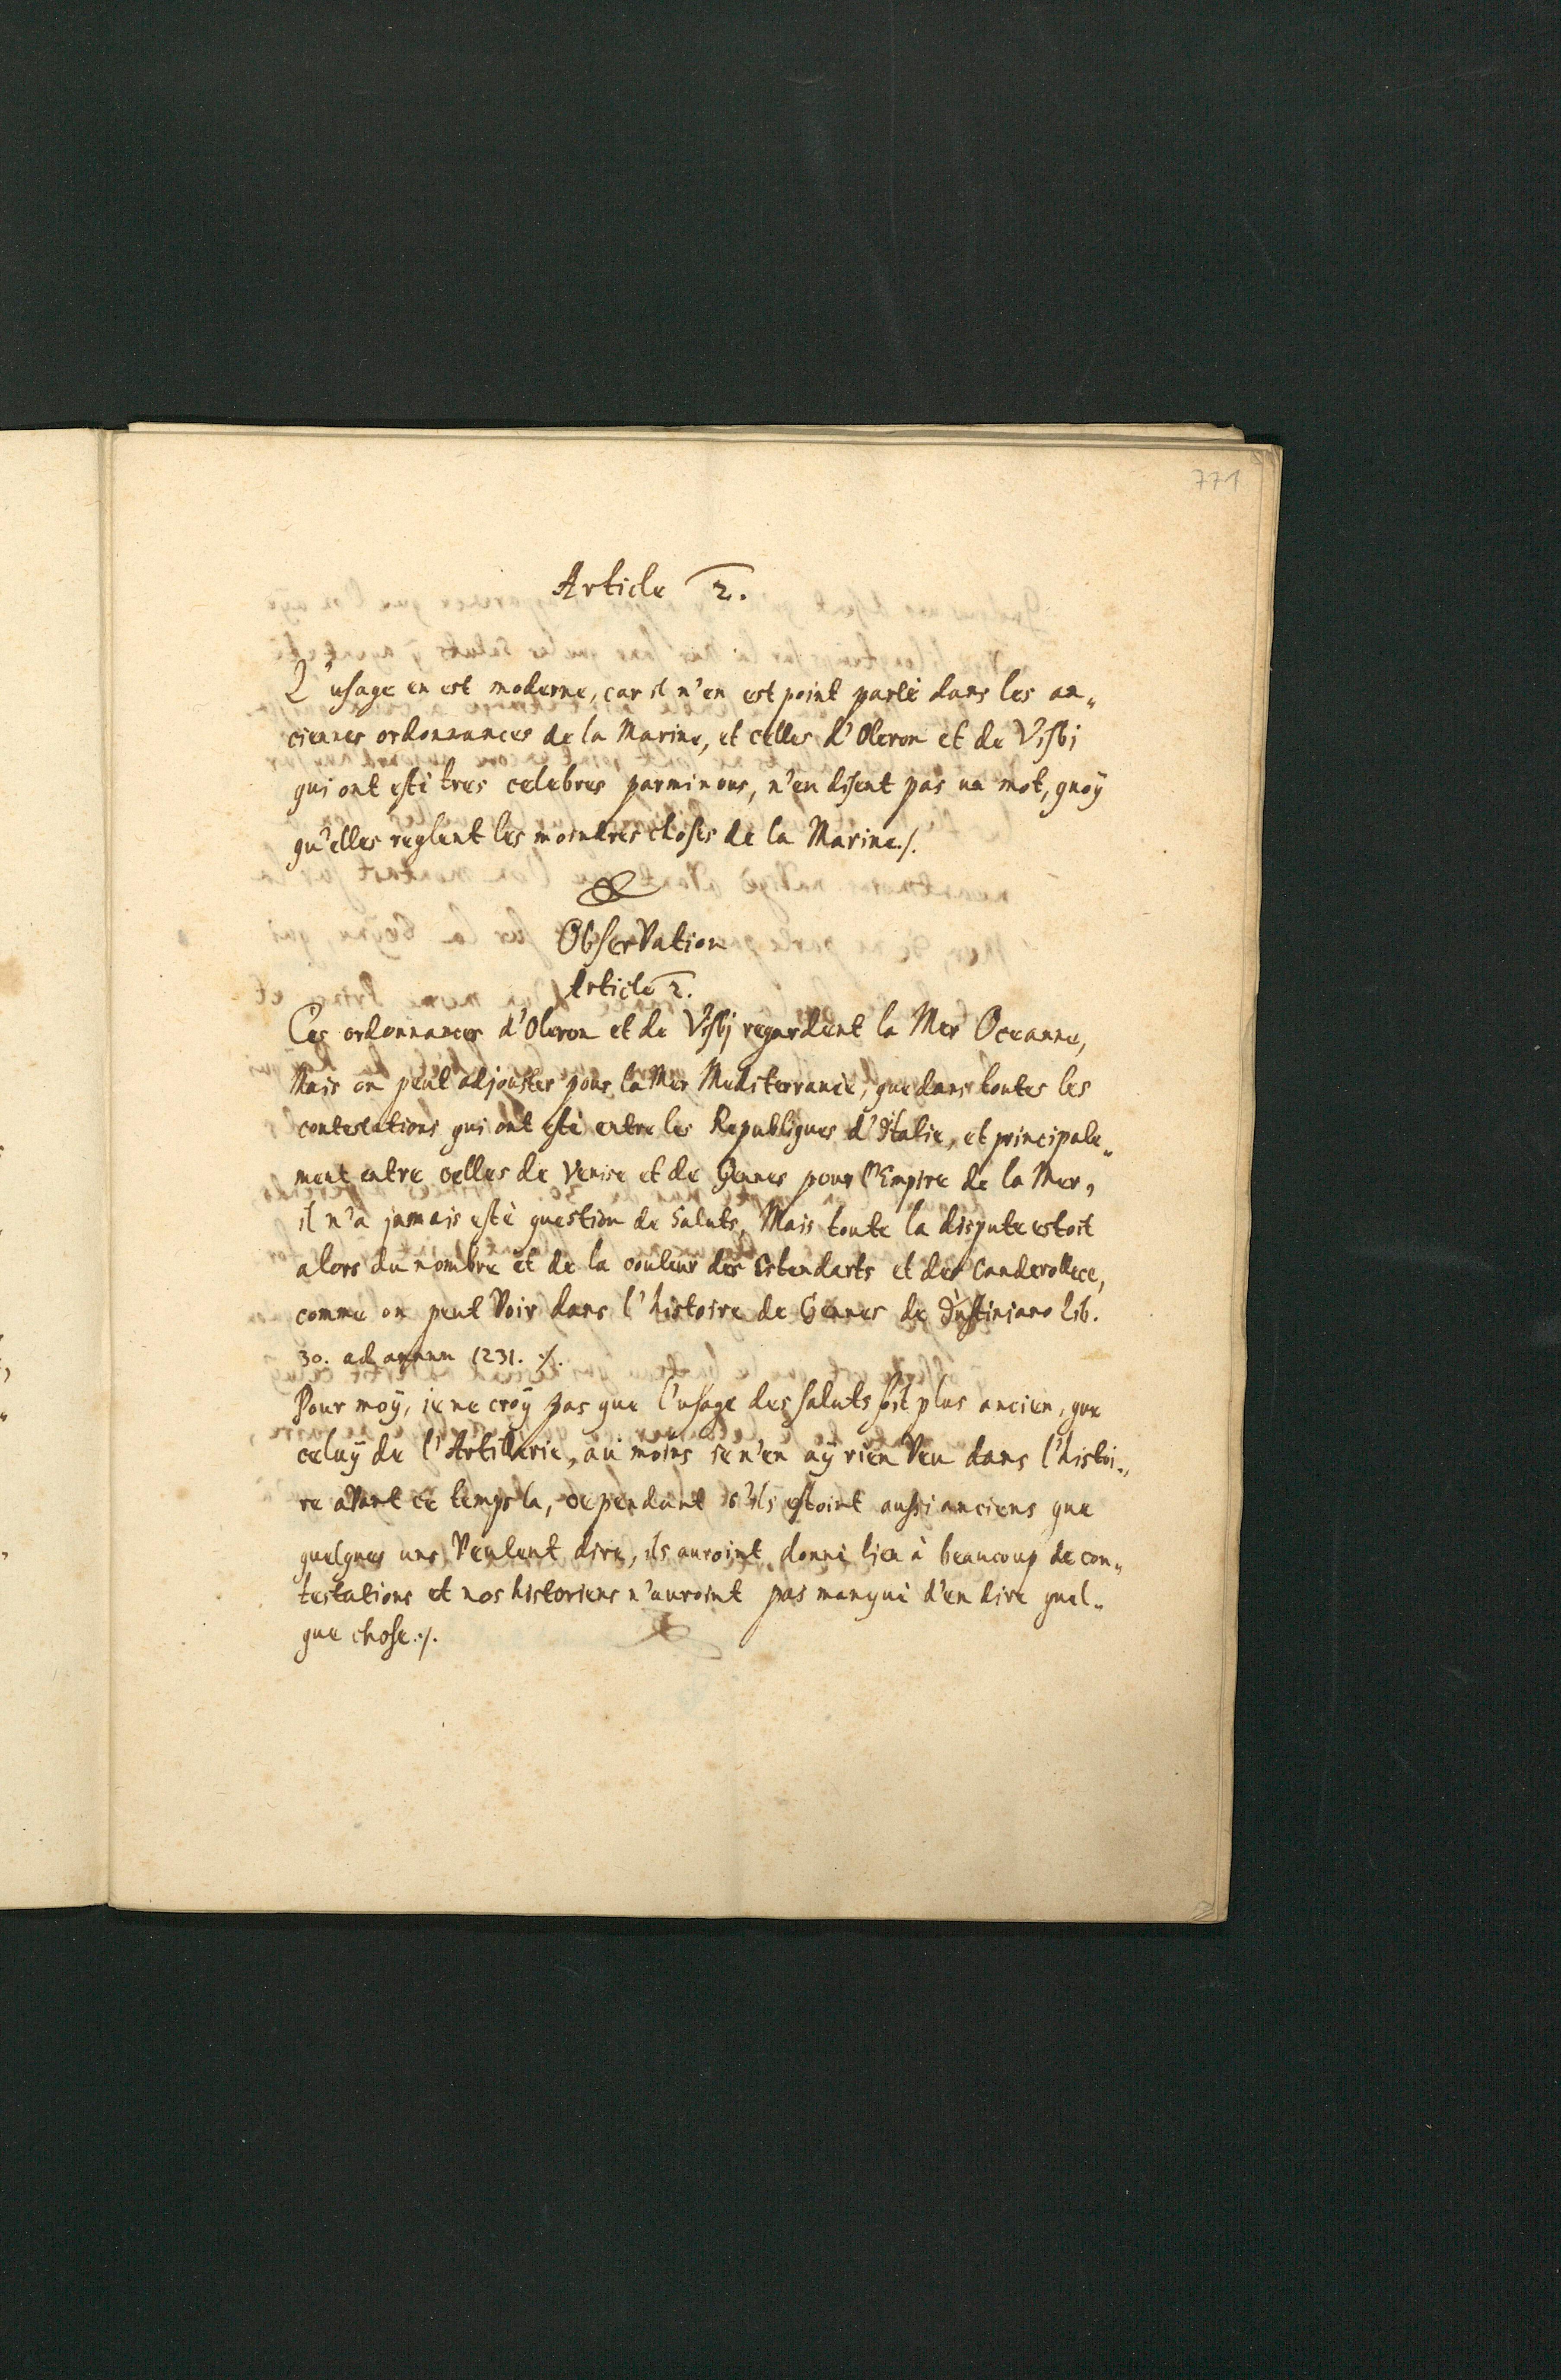 771
Article 2.
L'usage en est moderne, car il n'en est point parlé dans les an„
ciennes ordonnances de la Marine, et celles d'Oleron et de Visbi
qui ont esté tres celebres parmi nous, n'en disent pas un mot, quoÿ
qu'elles reglent les moindres choses de la Marine./.
Observation
Article 2.
Ces ordonnances d'Oleron et de Visbj regardent la Mer Oceanne,
Mais on peut adjouster pour la Mer Mediterraneè, que dans toutes les
contestations qui ont esté entre les Republiques d'Italie, et principale„
ment entre celles de Venise et de Gennes pour l'Empire de la Mer,
il n'a jamais esté question de Saluts, Mais toute la dispute estoit
alors du nombre et de la couleur des Estendarts et des
comme on peut Voir dans l'histoire de Gennes de Iustiniano Lib.
30. ad annum 1231. ./.
Pour moÿ, ie ne croÿ pas que l'usage des saluts soit plus ancien, que
celuÿ de l'Artillerie, au moins ie n'en aÿ rien Veu dans l'histoi„
re aVant ce temps la, cependant s'ils estoint aussi anciens que
quelques uns Veulent dire, ils auroint donné lieu à beaucoup de con„
testations et nos historiens n'auroint pas manqué d'en dire quel„
que chose./.